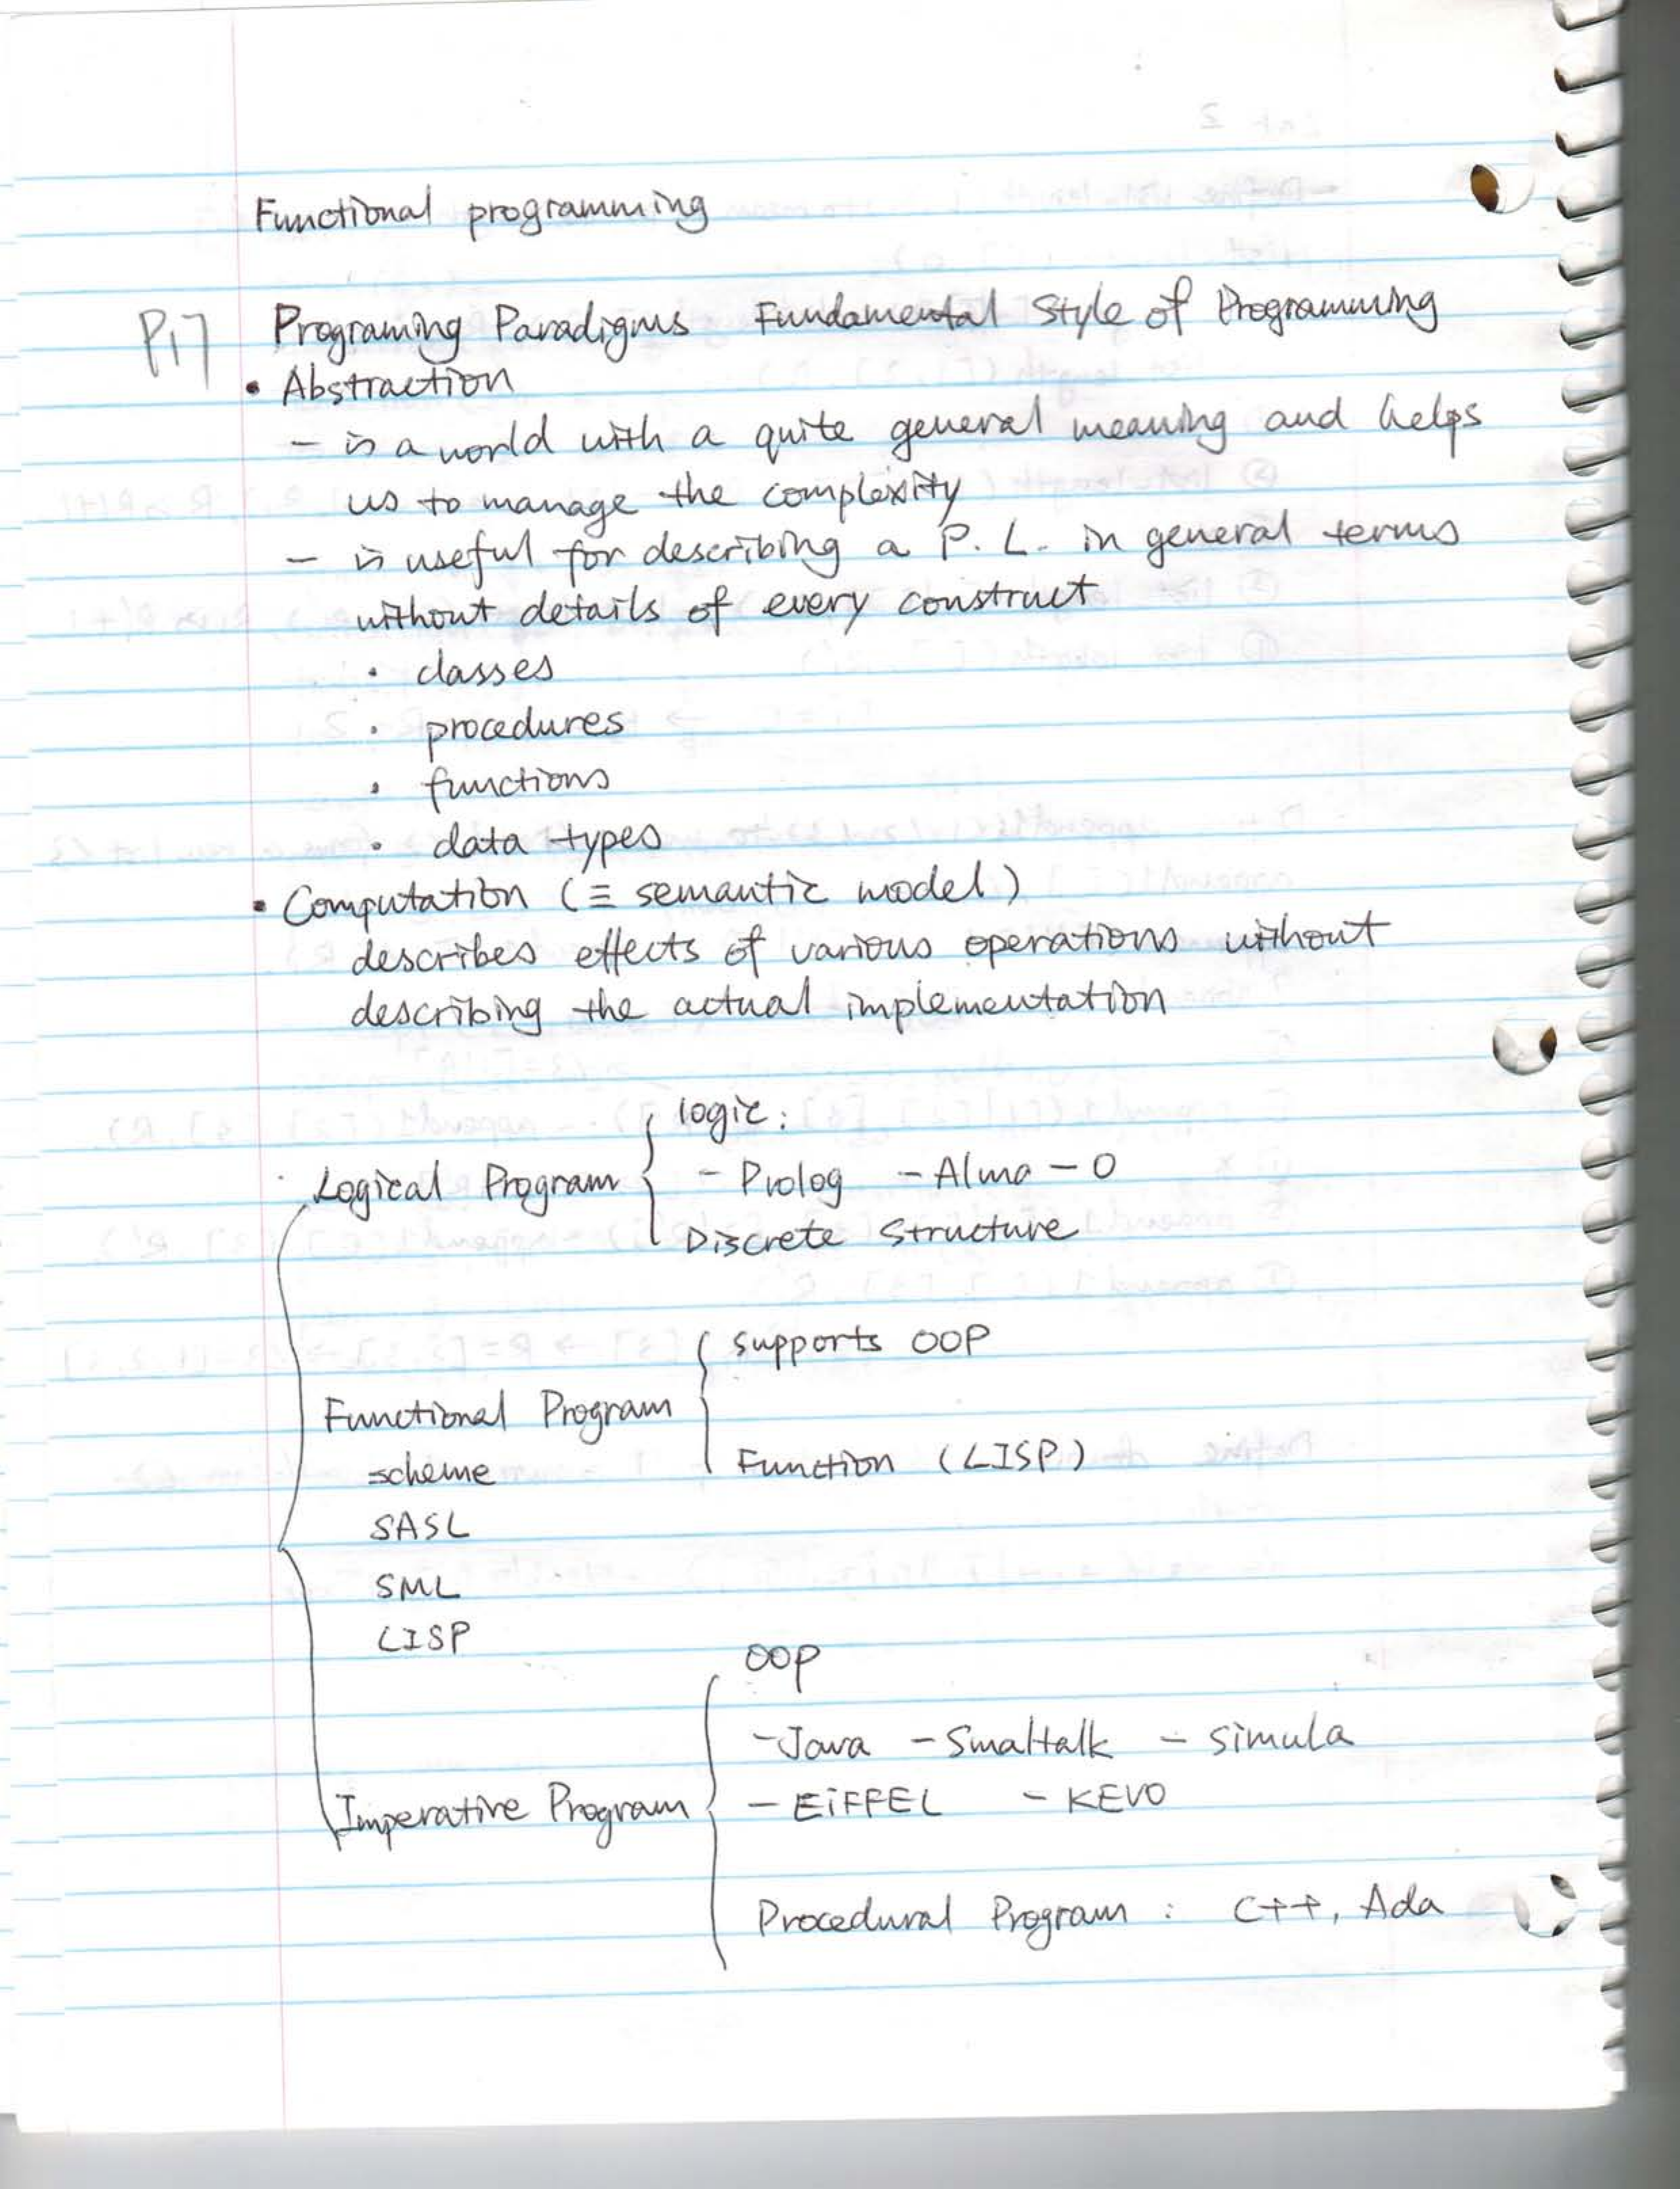 Functional programming
P17 Programing Paradigms Fundamental Style of Programming
• Abstraction
- is a world with a quite general meaning and helps
us to manage the complexity
- is useful for describing a P. L. in general terms
without details of every construct
• classes
• procedures
• functions
• data types
• Computation (≡ semantic model)
describes effects of various operations without
describing the actual implementation
logic:
Logical Program - Prolog - Alma - O
Discrete Structure
supports OOP
Functional Program
scheme Function (LISP)
SASL
SML
LISP
OOP
- Java - Smaltalk - simula
Imperative Program - EiFFEL - KEVO
Procedural Program : C++, Ada